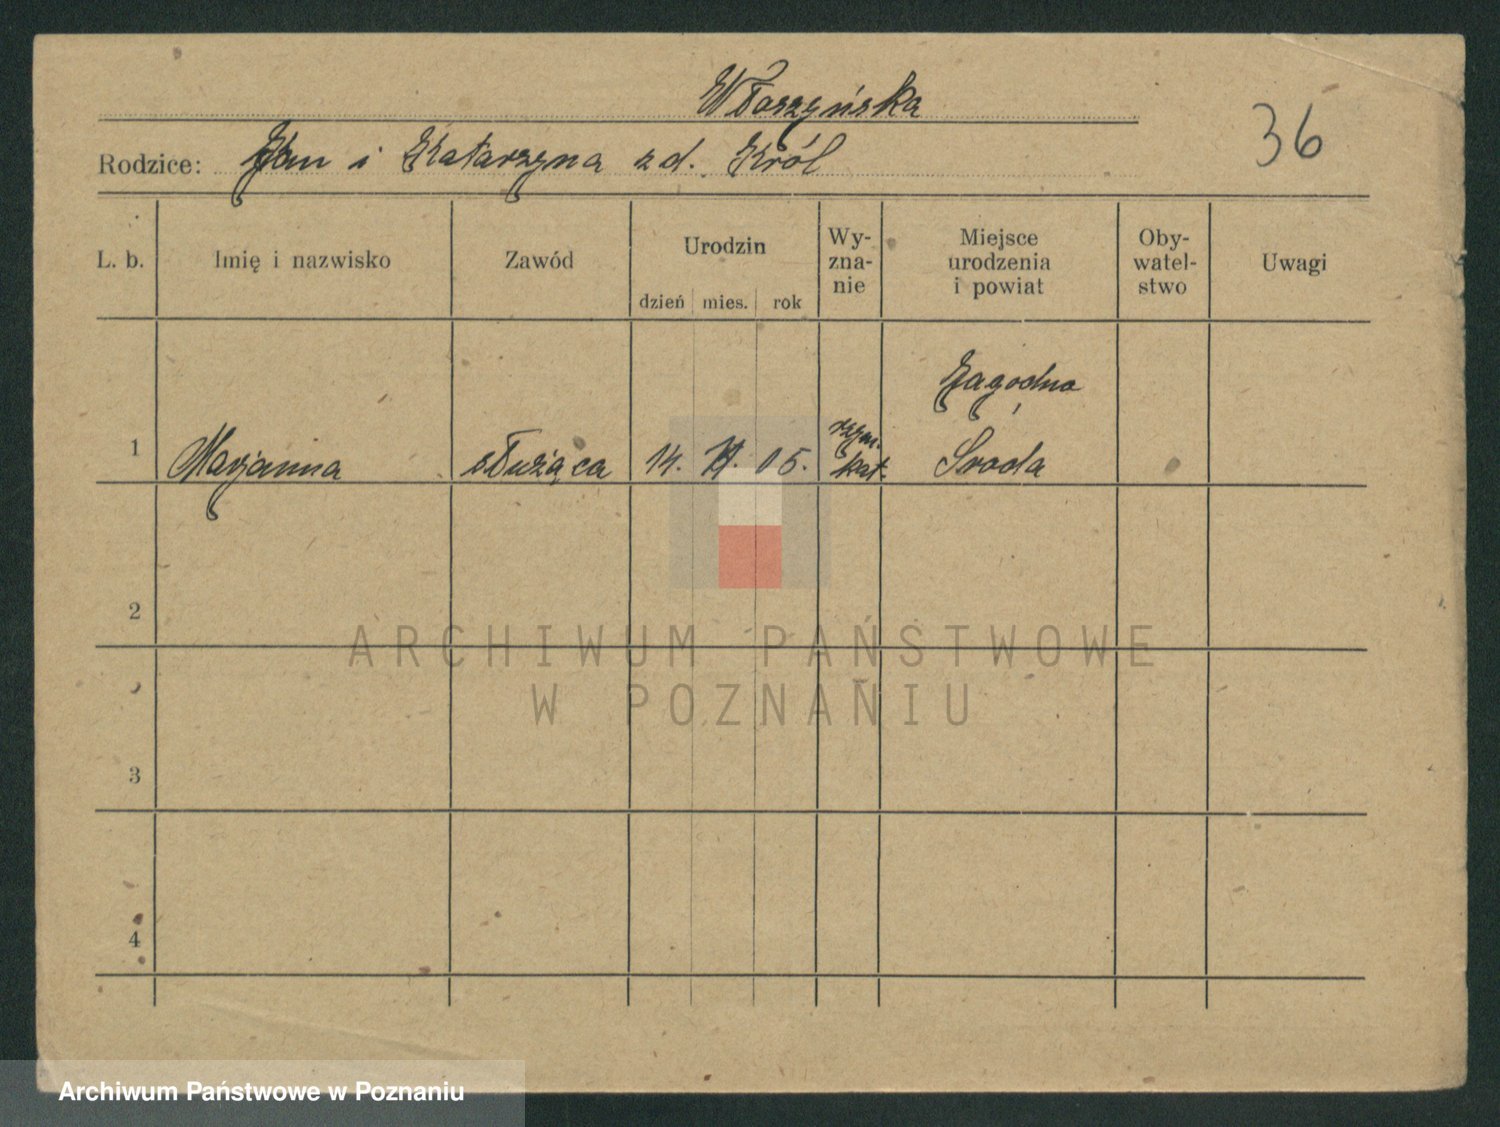 Włoszyńska
36
Rodzice: Jan i Katarzyna zd. Król
L. b. Imię i nazwisko Zawód Urodzin dzień mies. rok Wy-zna-nie Miejsce urodzenia i powiat Oby-watel-stwo Uwagi
Jagodno
rzym.
1 Marjanna służąca 14. 05. kat. Sroda
2
ARCHIWUM PAŃSTWOWE
W POZNANIU
3
4
Archiwum Państwowe w Poznaniu